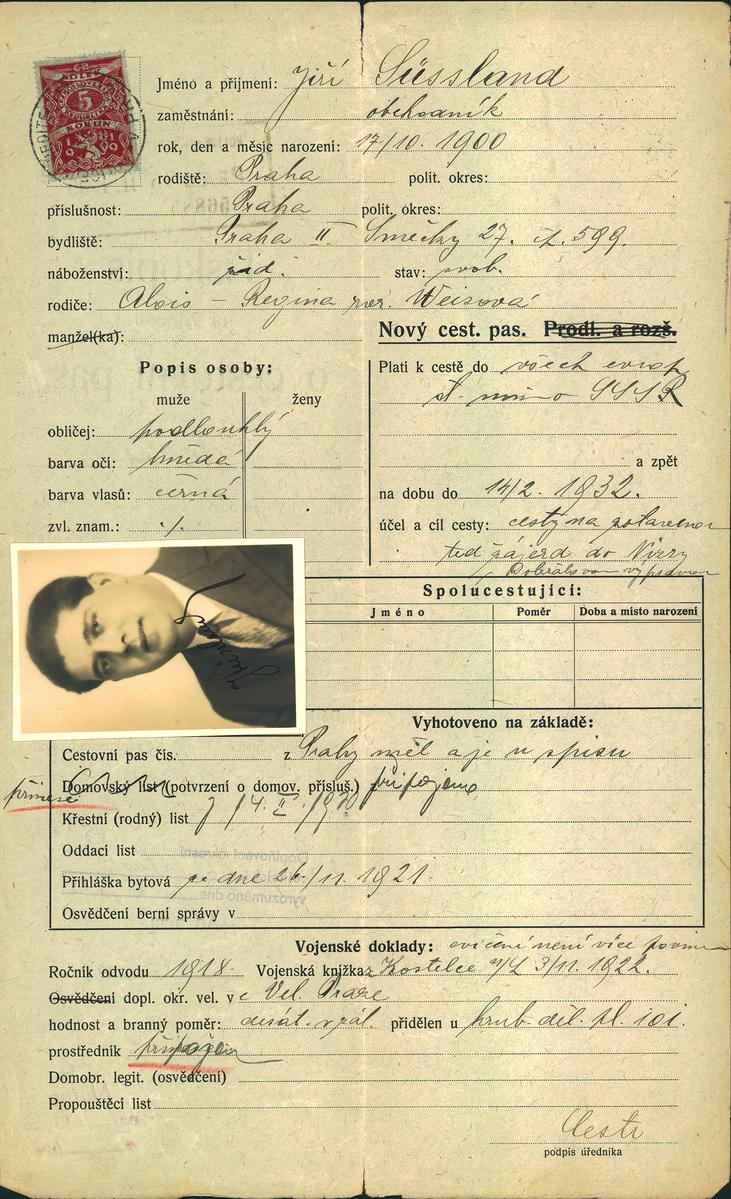 5
KORUN
1919
Jméno a příjmení: Jiří Süssland
zaměstnání: obchodník
rok, den a měsíc narození: 17/10. 1900
rodiště: Praha polit. okres:
příslušnost: Praha polit. okres:
bydliště: Praha II Smečky 27. č. 599.
náboženství: žid. stav: svob.
rodiče: Alois – Regina roz. Weisová
manžel(ka):
Nový cest. pas. Prodl. a rozš.
Popis osoby:
muže ženy
obličej: podlouhlý
barva očí: hnědá
barva vlasů: černá
zvl. znam.: ./.
Platí k cestě do všech evrop
st. mimo SSSR
a zpět
na dobu do 14/2. 1932.
účel a cíl cesty: cesty na zotavenou
teď zájezd do Nizzy
Spolucestující:
Jméno Poměr Doba a místo narození
Vyhotoveno na základě:
Cestovní pas čís. z Prahy měl a je u spisu
Domovský list (potvrzení o domov. přísluš.) připojeno
přinese
Křestní (rodný) list 14. II. 1930
Oddací list
Přihláška bytová ze dne 26./11. 1921.
Osvědčení berní správy v
Vojenské doklady: cvičení není více povin
Ročník odvodu 1918. Vojenská knížka z Kostelce n/L 3/11. 1922.
Osvědčení dopl. okr. vel. v e Vel. Praze
hodnost a branný poměr: desát. v zál. přidělen u hrub. děl. pl. 101.
prostředník
Domobr. legit. (osvědčení)
Propouštěcí list
podpis úředníka